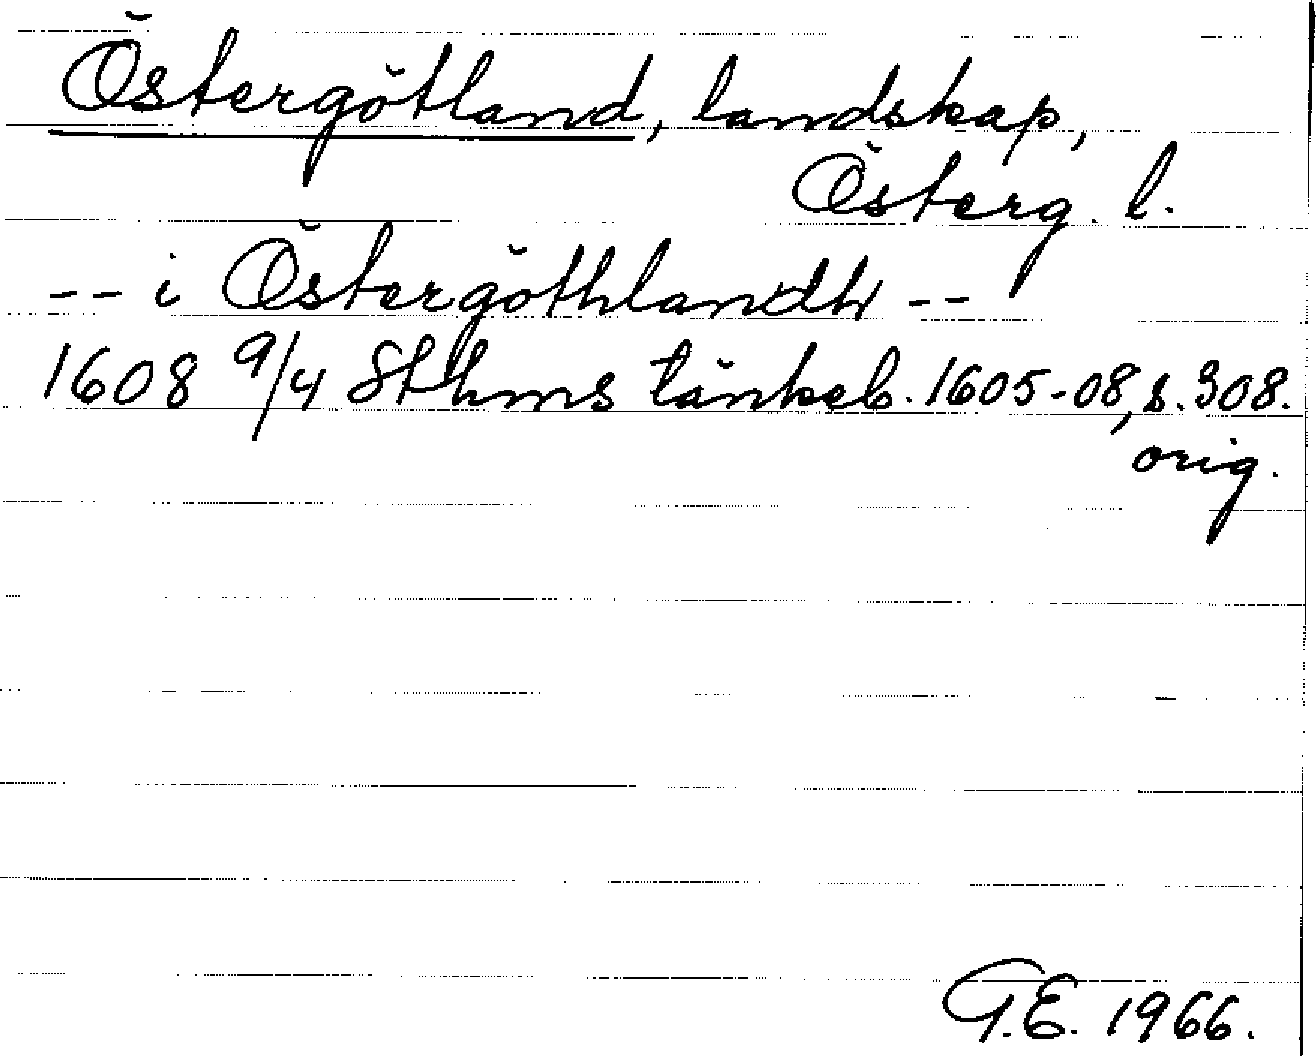 Östergötland, landskap,
Österg. l.
-- i Östergöthlandh --
1608 9/4 Sthms tänkeb. 1605-08, s. 308.
orig.
G.E. 1966.